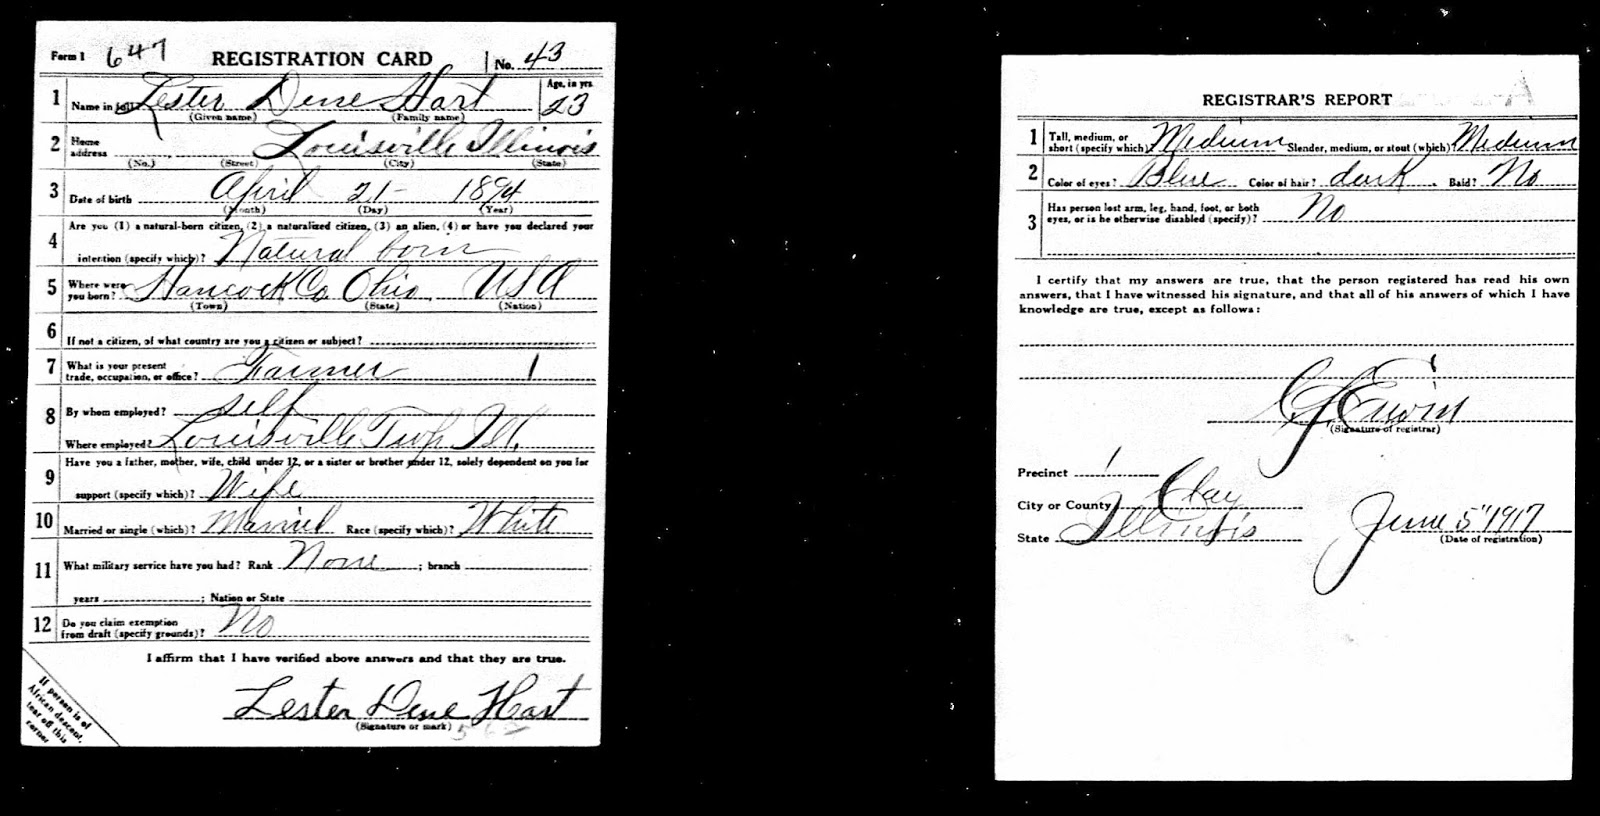 Form 1 647 REGISTRATION CARD No. 43
1 Name in full Lester Dene Hart Age, in yrs. 23
(Given name) (Family name)
2 Home address Louisville Illinois
(No.) (Street) (City) (State)
3 Date of birth April 21 - 1894
(Month) (Day) (Year)
4 Are you (1) a natural-born citizen, (2) a naturalized citizen, (3) an alien, (4) or have you declared your
intention (specify which)? Natural born
5 Where were you born? Hancock Co. Ohio USA
(Town) (State) (Nation)
6 If not a citizen, of what country are you a citizen or subject?
7 What is your present trade, occupation, or office? Farmer 1
8 By whom employed? self
Where employed? Louisville Twp Ill.
9 Have you a father, mother, wife, child under 12, or a sister or brother under 12, solely dependent on you for
support (specify which)? Wife
10 Married or single (which)? Married Race (specify which)? White
11 What military service have you had? Rank None ; branch
years ; Nation or State
12 Do you claim exemption from draft (specify grounds)? No
I affirm that I have verified above answers and that they are true.
Lester Dene Hart
(Signature or mark)
If person is of
African descent,
tear off this
corner
REGISTRAR'S REPORT
1 Tall, medium, or short (specify which)? Medium Slender, medium, or stout (which)? Medium
2 Color of eyes? Blue Color of hair? dark . Bald? No
3 Has person lost arm, leg, hand, foot, or both
eyes, or is he otherwise disabled (specify)? No
I certify that my answers are true, that the person registered has read his own
answers, that I have witnessed his signature, and that all of his answers of which I have
knowledge are true, except as follows:
Erwin
(Signature of registrar)
Precinct 1
City or County Clay
State Illinois June 5" 1917
(Date of registration)